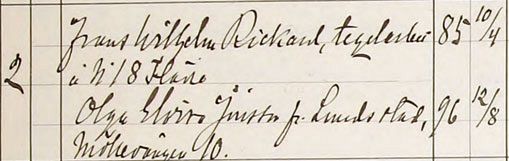 Frans Wilhelm Rickard, tegelarbe 85 10/4
2 å N 18 Flädie
Olga Elvira Jönsson fr. Lunds stad, 96 12/8
Möllevången 10.